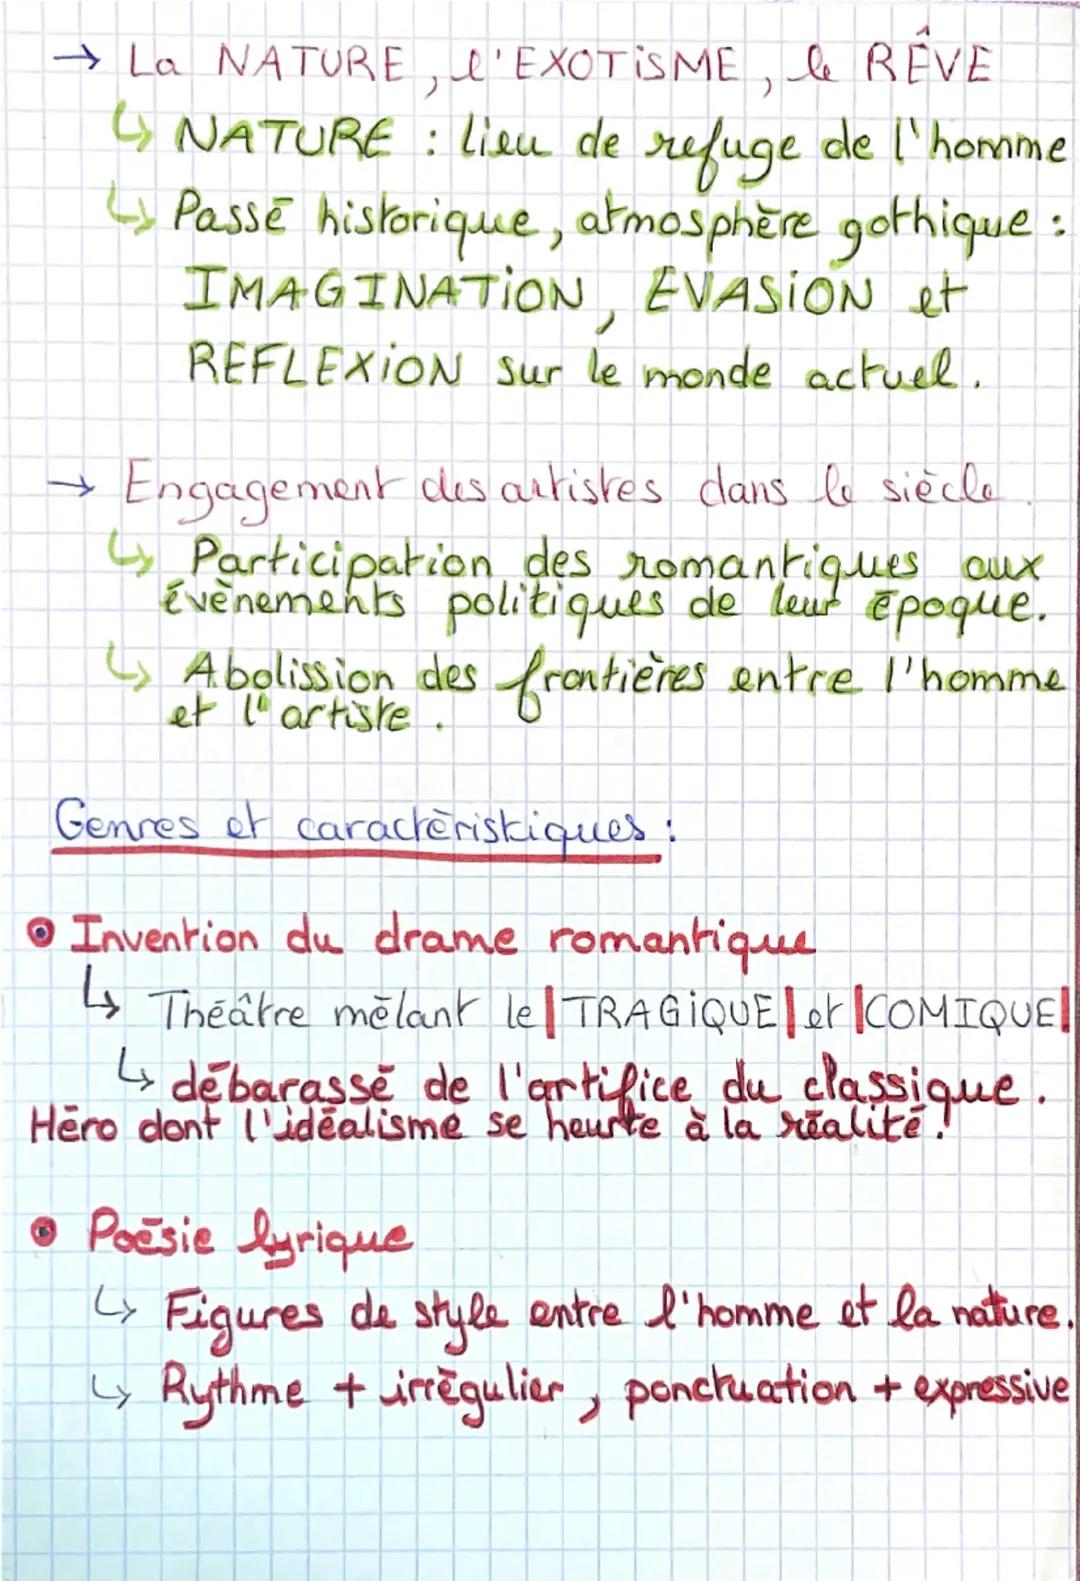 → La NATURE, l'EXOTiSME, le RÊVE
↳ NATURE : lieu de refuge de l'homme
↳ Passé historique, atmosphère gothique :
IMAGINATiON, EVASiON et
REFLEXiON sur le monde actuel.
→ Engagement des artistes dans le siècle.
↳ Participation des romantiques aux
évènements politiques de leur époque.
↳ Abolission des frontières entre l'homme
et l'artiste.
Genres et caractéristiques :
Invention du drame romantique
↳ Théâtre mêlant le |TRAGiQUE| et |COMIQUE|
↳ débarassé de l'artifice du classique.
Héro dont l'idéalisme se heurte à la réalité.
Poésie lyrique
↳ Figures de style entre l'homme et la nature.
↳ Rythme + irrégulier, ponctuation + expressive